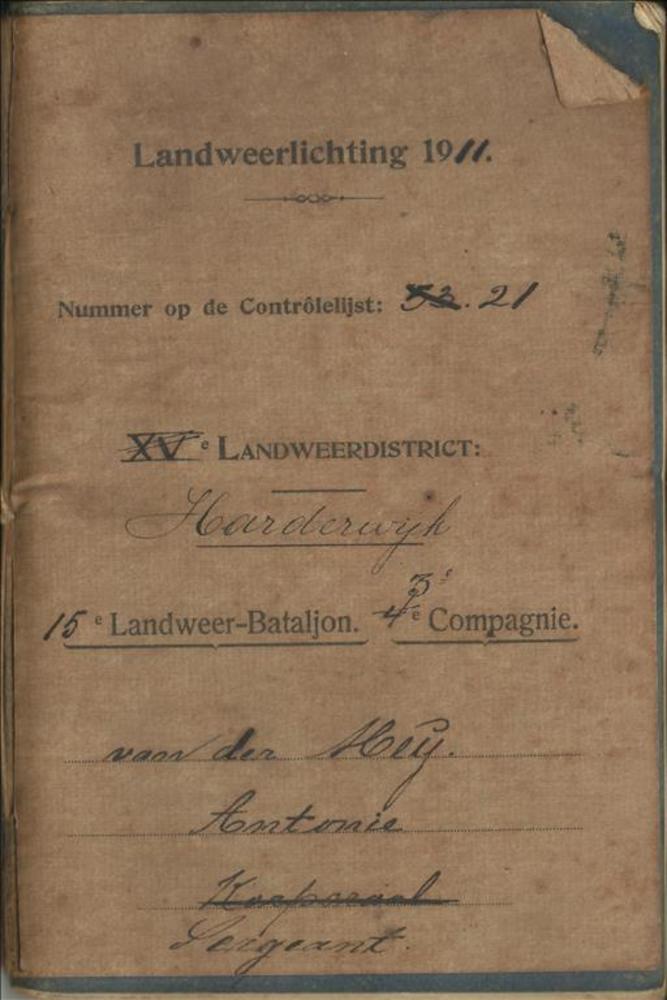 Landweerlichting 1911.
Nummer op de Contrôlelijst: 53. 21
XVe LANDWEERDISTRICT:
Harderwijk
3e
15e Landweer-Bataljon. 4e Compagnie.
van der Heÿ.
Antonie
Korporaal
Sergeant.